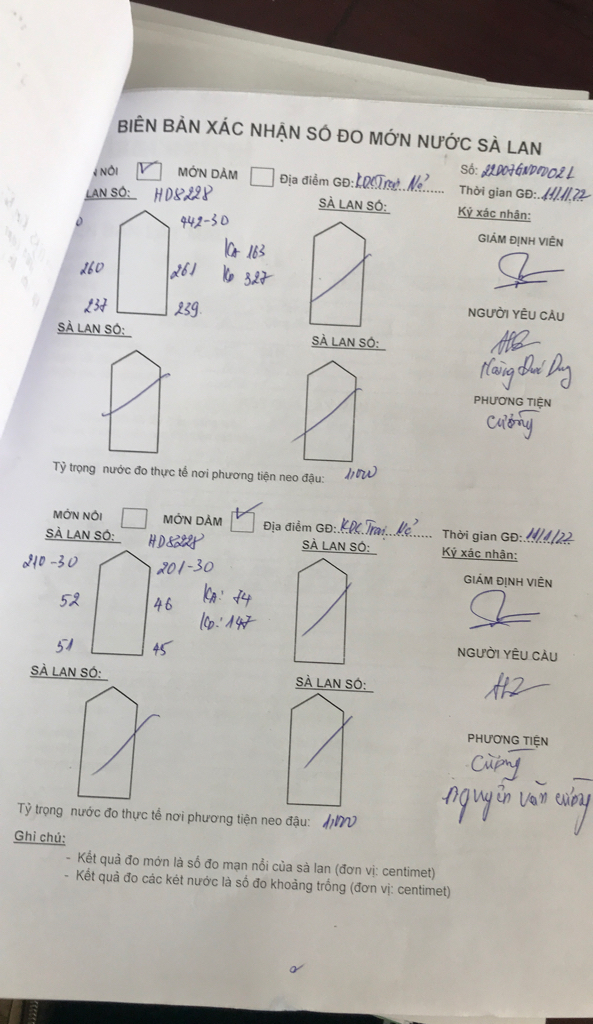 BIÊN BẢN XÁC NHẬN SỐ ĐO MỚN NƯỚC SÀ LAN
NỔI MỚN DẦM Địa điểm GĐ: KDC Trại Mẻ Số:
LAN SỐ: HD8228 SÀ LAN SỐ: Thời gian GĐ: 11/1/22
442-30 Ký xác nhận:
KA 163 GIÁM ĐỊNH VIÊN
260 261 KD 327
237 239
NGƯỜI YÊU CẦU
SÀ LAN SỐ: SÀ LAN SỐ:
PHƯƠNG TIỆN
Cường
Tỷ trọng nước đo thực tế nơi phương tiện neo đậu: 1,000
MỚN NỔI MỚN DẦM Địa điểm GĐ: KDC Trại Mẻ Thời gian GĐ: 11/1/22
SÀ LAN SỐ: HD8228 SÀ LAN SỐ: Ký xác nhận:
210-30 201-30
GIÁM ĐỊNH VIÊN
52 46 KA: 74
KD: 147
51 45
NGƯỜI YÊU CẦU
SÀ LAN SỐ: SÀ LAN SỐ:
PHƯƠNG TIỆN
Cường
Nguyễn Văn Cường
Tỷ trọng nước đo thực tế nơi phương tiện neo đậu: 1,000
Ghi chú:
- Kết quả đo mớn là số đo mạn nổi của sà lan (đơn vị: centimet)
- Kết quả đo các két nước là số đo khoảng trống (đơn vị: centimet)